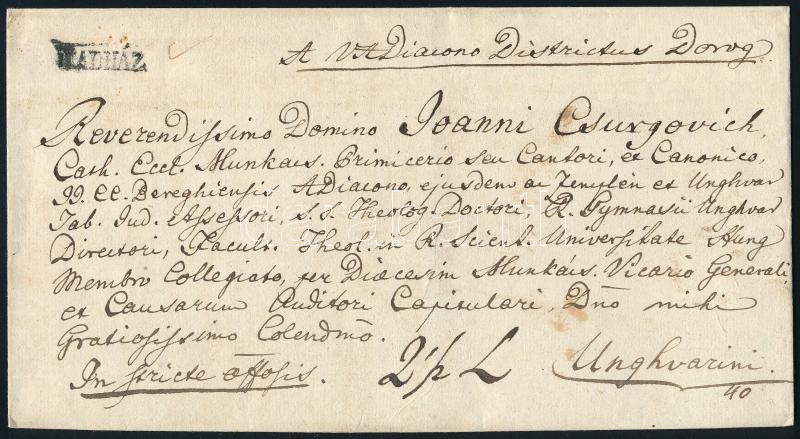 HADHÁZ
A VADiacono Districtus Dorog.
Reverendissimo Domino Joanni Csurgovich,
Cath. Eccl. Munkács. Primicerio seu Cantori, et Canonico,
II. CC. Bereghiensis ADiacono, ejusdem ac Zemplén et Unghvar
Tab. Jud. Assessori, S. S. Theolog. Doctori, R. Gymnasii Unghvar
Directori, Facult. Theol. in R. Scient. Universitate Hung
Membro Collegiato, per Diœcesim Munkács. Vicario Generali,
et Causarum Auditori Capitulari, Dno mihi
Gratiosissimo Colendmo.
In stricte offosis.
2½ L
Unghvarini.
40